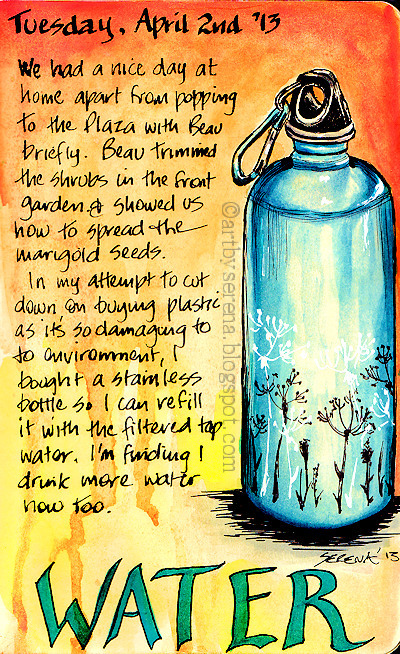 Tuesday, April 2nd '13
We had a nice day at
home apart from popping
to the Plaza with Beau
briefly. Beau trimmed
the shrubs in the front
garden & showed us
how to spread the
marigold seeds.
In my attempt to cut
down on buying plastic
as it's so damaging to
to environment, I
bought a stainless
bottle so I can refill
it with the filtered tap
water. I'm finding I
drink more water
now too.
©artbyserena.blogspot.com
SERENA '13
WATER